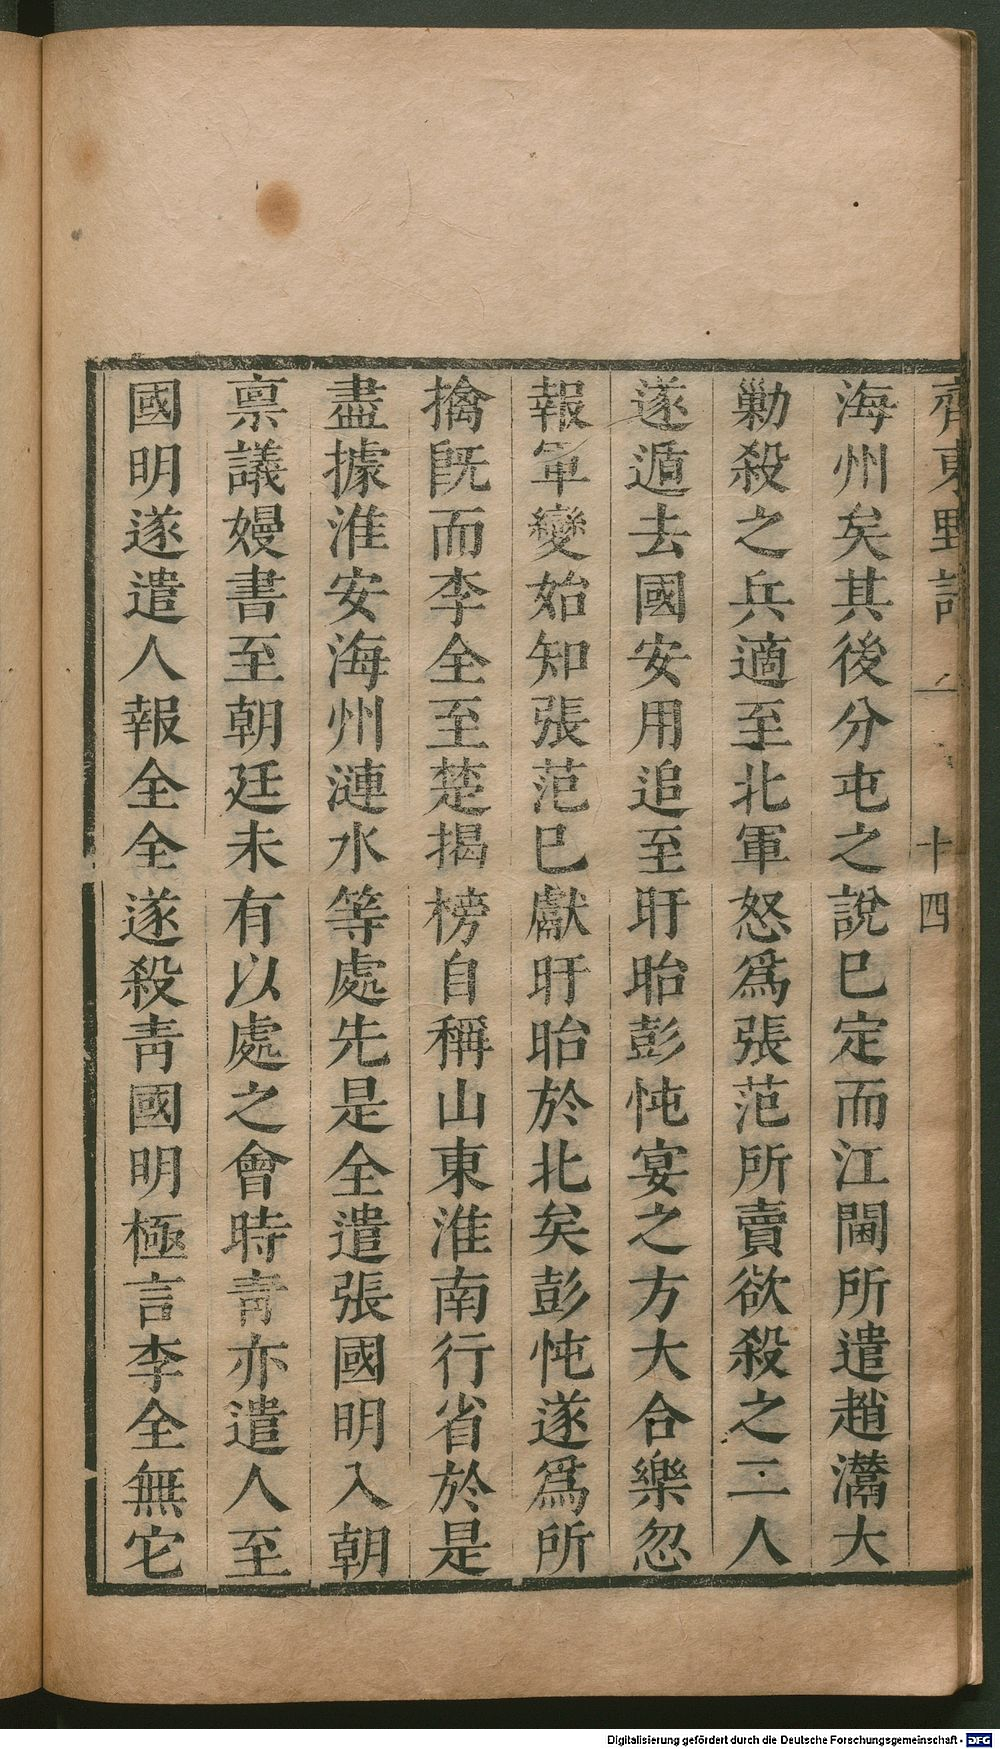 齊東野語
十四
海州矣其後分屯之說已定而江閫所遣趙灊大
勦殺之兵適至北軍怒爲張范所賣欲殺之二人
遂遁去國安用追至盱眙彭忳宴之方大合樂忽
報軍變始知張范已獻盱眙於北矣彭忳遂爲所
擒旣而李全至楚揭榜自稱山東淮南行省於是
盡據淮安海州漣水等處先是全遣張國明入朝
禀議嫚書至朝廷未有以處之會時靑亦遣人至
國明遂遣人報全全遂殺靑國明極言李全無它
Digitalisierung gefördert durch die Deutsche Forschungsgemeinschaft - DFG